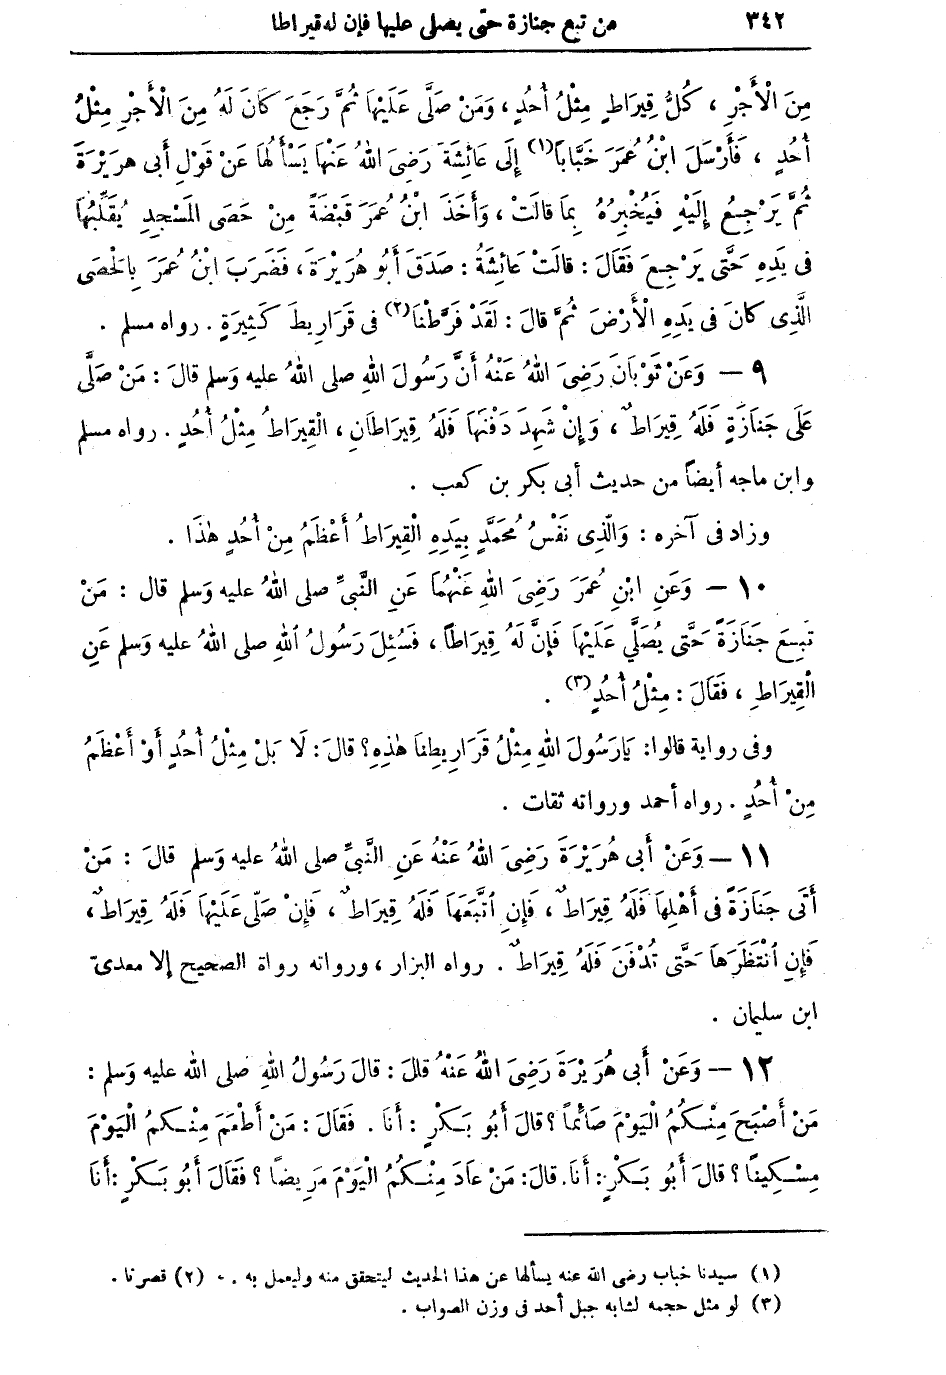 ٣٤٢ من تبع جنازة حتى يصلى عليها فإن له قيراطا
مِنَ الْأَجْرِ ، كُلُّ قِيرَاطٍ مِثْلُ أُحُدٍ ، وَمَنْ صَلَّى عَلَيْهَا ثُمَّ رَجَعَ كَانَ لَهُ مِنَ الْأَجْرِ مِثْلُ
أُحُدٍ ، فَأَرْسَلَ ابْنُ عُمَرَ خَبَّاباً (١) إِلَى عَائِشَةَ رَضِىَ اللهُ عَنْهَا يَسْأَلُهَا عَنْ قَوْلِ أَبى هريْرَةَ
ثُمَّ يَرْجِعُ إِلَيْهِ فَيُخْبِرُهُ بِمَا قالَتْ ، وَأَخَذَ ابْنُ عُمَرَ قَبْضَةً مِنْ حَصَى المَسْجِدِ يُقَلِّبُهَا
فى يَدِهِ حَتَّى يَرْجِعَ فَقَالَ : قالَتْ عَائِشَةُ : صَدَقَ أَبُو هُرَيْرَةَ ، فَضَرَبَ ابْنُ عُمَرَ بِالْحَصَى
الَّذِى كانَ فى يَدِهِ الْأَرْضَ ثُمَّ قالَ : لَقَدْ فَرَّطْنَا (٢) فى قَرَارِيطَ كَثِيرَةٍ . رواه مسلم .
٩ — وَعَنْ ثَوْبَانَ رَضِىَ اللهُ عَنْهُ أَنَّ رَسُولَ اللهِ صلى اللهُ عليه وَسلم قالَ : مَنْ صَلَّى
عَلَى جَنَازَةٍ فَلَهُ قِيرَاطٌ ، وَإِنْ شَهِدَ دَفْنَهَا فَلَهُ قِيرَاطَانِ ، الْقِيرَاطُ مِثْلُ أُحُدٍ . رواه مسلم
وابن ماجه أيضاً من حديث أبى بكر بن كعب .
وزاد فى آخره : وَالَّذِى نَفْسُ مُحَمَّدٍ بِيَدِهِ الْقِيرَاطُ أَعْظَمُ مِنْ أُحُدٍ هٰذَا .
١٠ — وَعَنِ ابْنِ عُمَرَ رَضِىَ اللهِ عَنْهُمَا عَنِ النَّبِىِّ صلى اللهُ عليه وَسلم قال : مَنْ
تَبِعَ جَنَازَةً حَتَّى يُصَلَّي عَلَيْهَا فَإِنَّ لَهُ قِيرَاطاً ، فَسُئِلَ رَسُولُ اللهِ صلى اللهُ عليه وَسلم عَنِ
الْقِيرَاطِ ، فَقَالَ : مِثْلُ أُحُدٍ (٣) .
وفى رواية قالوا: يَارَسُولَ اللهِ مِثْلُ قَرَارِيطِنَا هٰذِهِ؟ قالَ: لَا بَلْ مِثْلُ أُحُدٍ أَوْ أَعْظَمُ
مِنْ أُحُدٍ . رواه أحمد ورواته ثقات .
١١ — وَعَنْ أَبى هُرَيْرَةَ رَضِىَ اللهُ عَنْهُ عَنِ النَّبِىِّ صلى اللهُ عليه وَسلم قالَ : مَنْ
أَتَى جَنَازَةً فى أَهْلِهَا فَلَهُ قِيرَاطٌ ، فَإِنِ اتَّبَعَهَا فَلَهُ قِيرَاطٌ ، فَإِنْ صَلَّى عَلَيْهَا فَلَهُ قِيرَاطٌ ،
فَإِنِ انْتَظَرَهَا حَتَّى تُدْفَنَ فَلَهُ قِيرَاطٌ . رواه البزار ، ورواته رواة الصحيح إلا معدىّ
ابن سليمان .
١٢ — وَعَنْ أَبى هُرَيْرَةَ رَضِىَ اللهُ عَنْهُ قالَ : قالَ رَسُولُ اللهِ صلى الله عليه وَسلم :
مَنْ أَصْبَحَ مِنْكُمُ الْيَوْمَ صَائماً ؟ قالَ أَبُو بَكْرٍ : أَنَا . فَقَالَ : مَنْ أَطْعَمَ مِنْكمُ الْيَوْمَ
مِسْكِيناً ؟ قالَ أَبُو بَكْرٍ : أَنَا. قالَ: مَنْ عَادَ مِنْكُمُ الْيَوْمَ مَرِيضاً ؟ فَقَالَ أَبُو بَكْرٍ : أَنَا
(١) سيدنا خباب رضى الله عنه يسألها عن هذا الحديث ليتحقق منه وليعمل به . (٢) قصرنا .
(٣) لو مثل حجمه لشابه جبل أحد فى وزن الصواب .